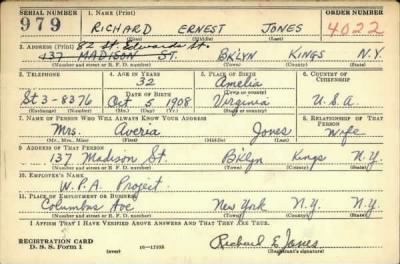 SERIAL NUMBER 1. NAME (Print) ORDER NUMBER
979 RICHARD ERNEST JONES 4022
(First) (Middle) (Last)
2. ADDRESS (Print) 82 St. Edwards St.
137 MADISON ST. BKLYN KINGS N.Y.
(Number and street or R. F. D. number) (Town) (County) (State)
3. TELEPHONE 4. AGE IN YEARS 5. PLACE OF BIRTH 6. COUNTRY OF CITIZENSHIP
32 Amelia
DATE OF BIRTH (Town or county)
St 3-8376 Oct 5 1908 Virginia U.S.A.
(Mo.) (Day) (Yr.) (State or country)
7. NAME OF PERSON WHO WILL ALWAYS KNOW YOUR ADDRESS 8. RELATIONSHIP OF THAT PERSON
Mrs. Averia Jones Wife
(Mr., Mrs., Miss) (First) (Middle) (Last)
9. ADDRESS OF THAT PERSON
137 Madison St. Bklyn Kings N.Y.
(Number and street or R. F. D. number) (Town) (County) (State)
10. EMPLOYER'S NAME
W.P.A. Project.
11. PLACE OF EMPLOYMENT OR BUSINESS
Columbus Ave New York N.Y. N.Y.
(Number and street or R. F. D. number) (Town) (County) (State)
I AFFIRM THAT I HAVE VERIFIED ABOVE ANSWERS AND THAT THEY ARE TRUE.
REGISTRATION CARD
D. S. S. Form 1 (over) 16-17105 Richard E. Jones
(Registrant's signature)